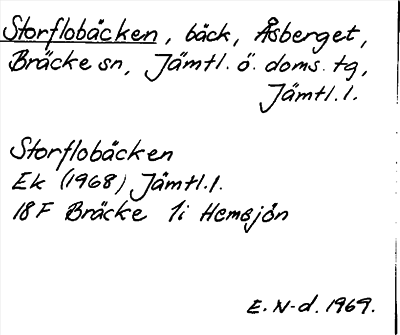 Storflobäcken, bäck, Åsberget,
Bräcke sn, Jämtl. ö. doms. tg,
Jämtl. l.
Storflobäcken
Ek (1968) Jämtl. l.
18 F Bräcke 1i Hemsjön
E. N-d. 1969.